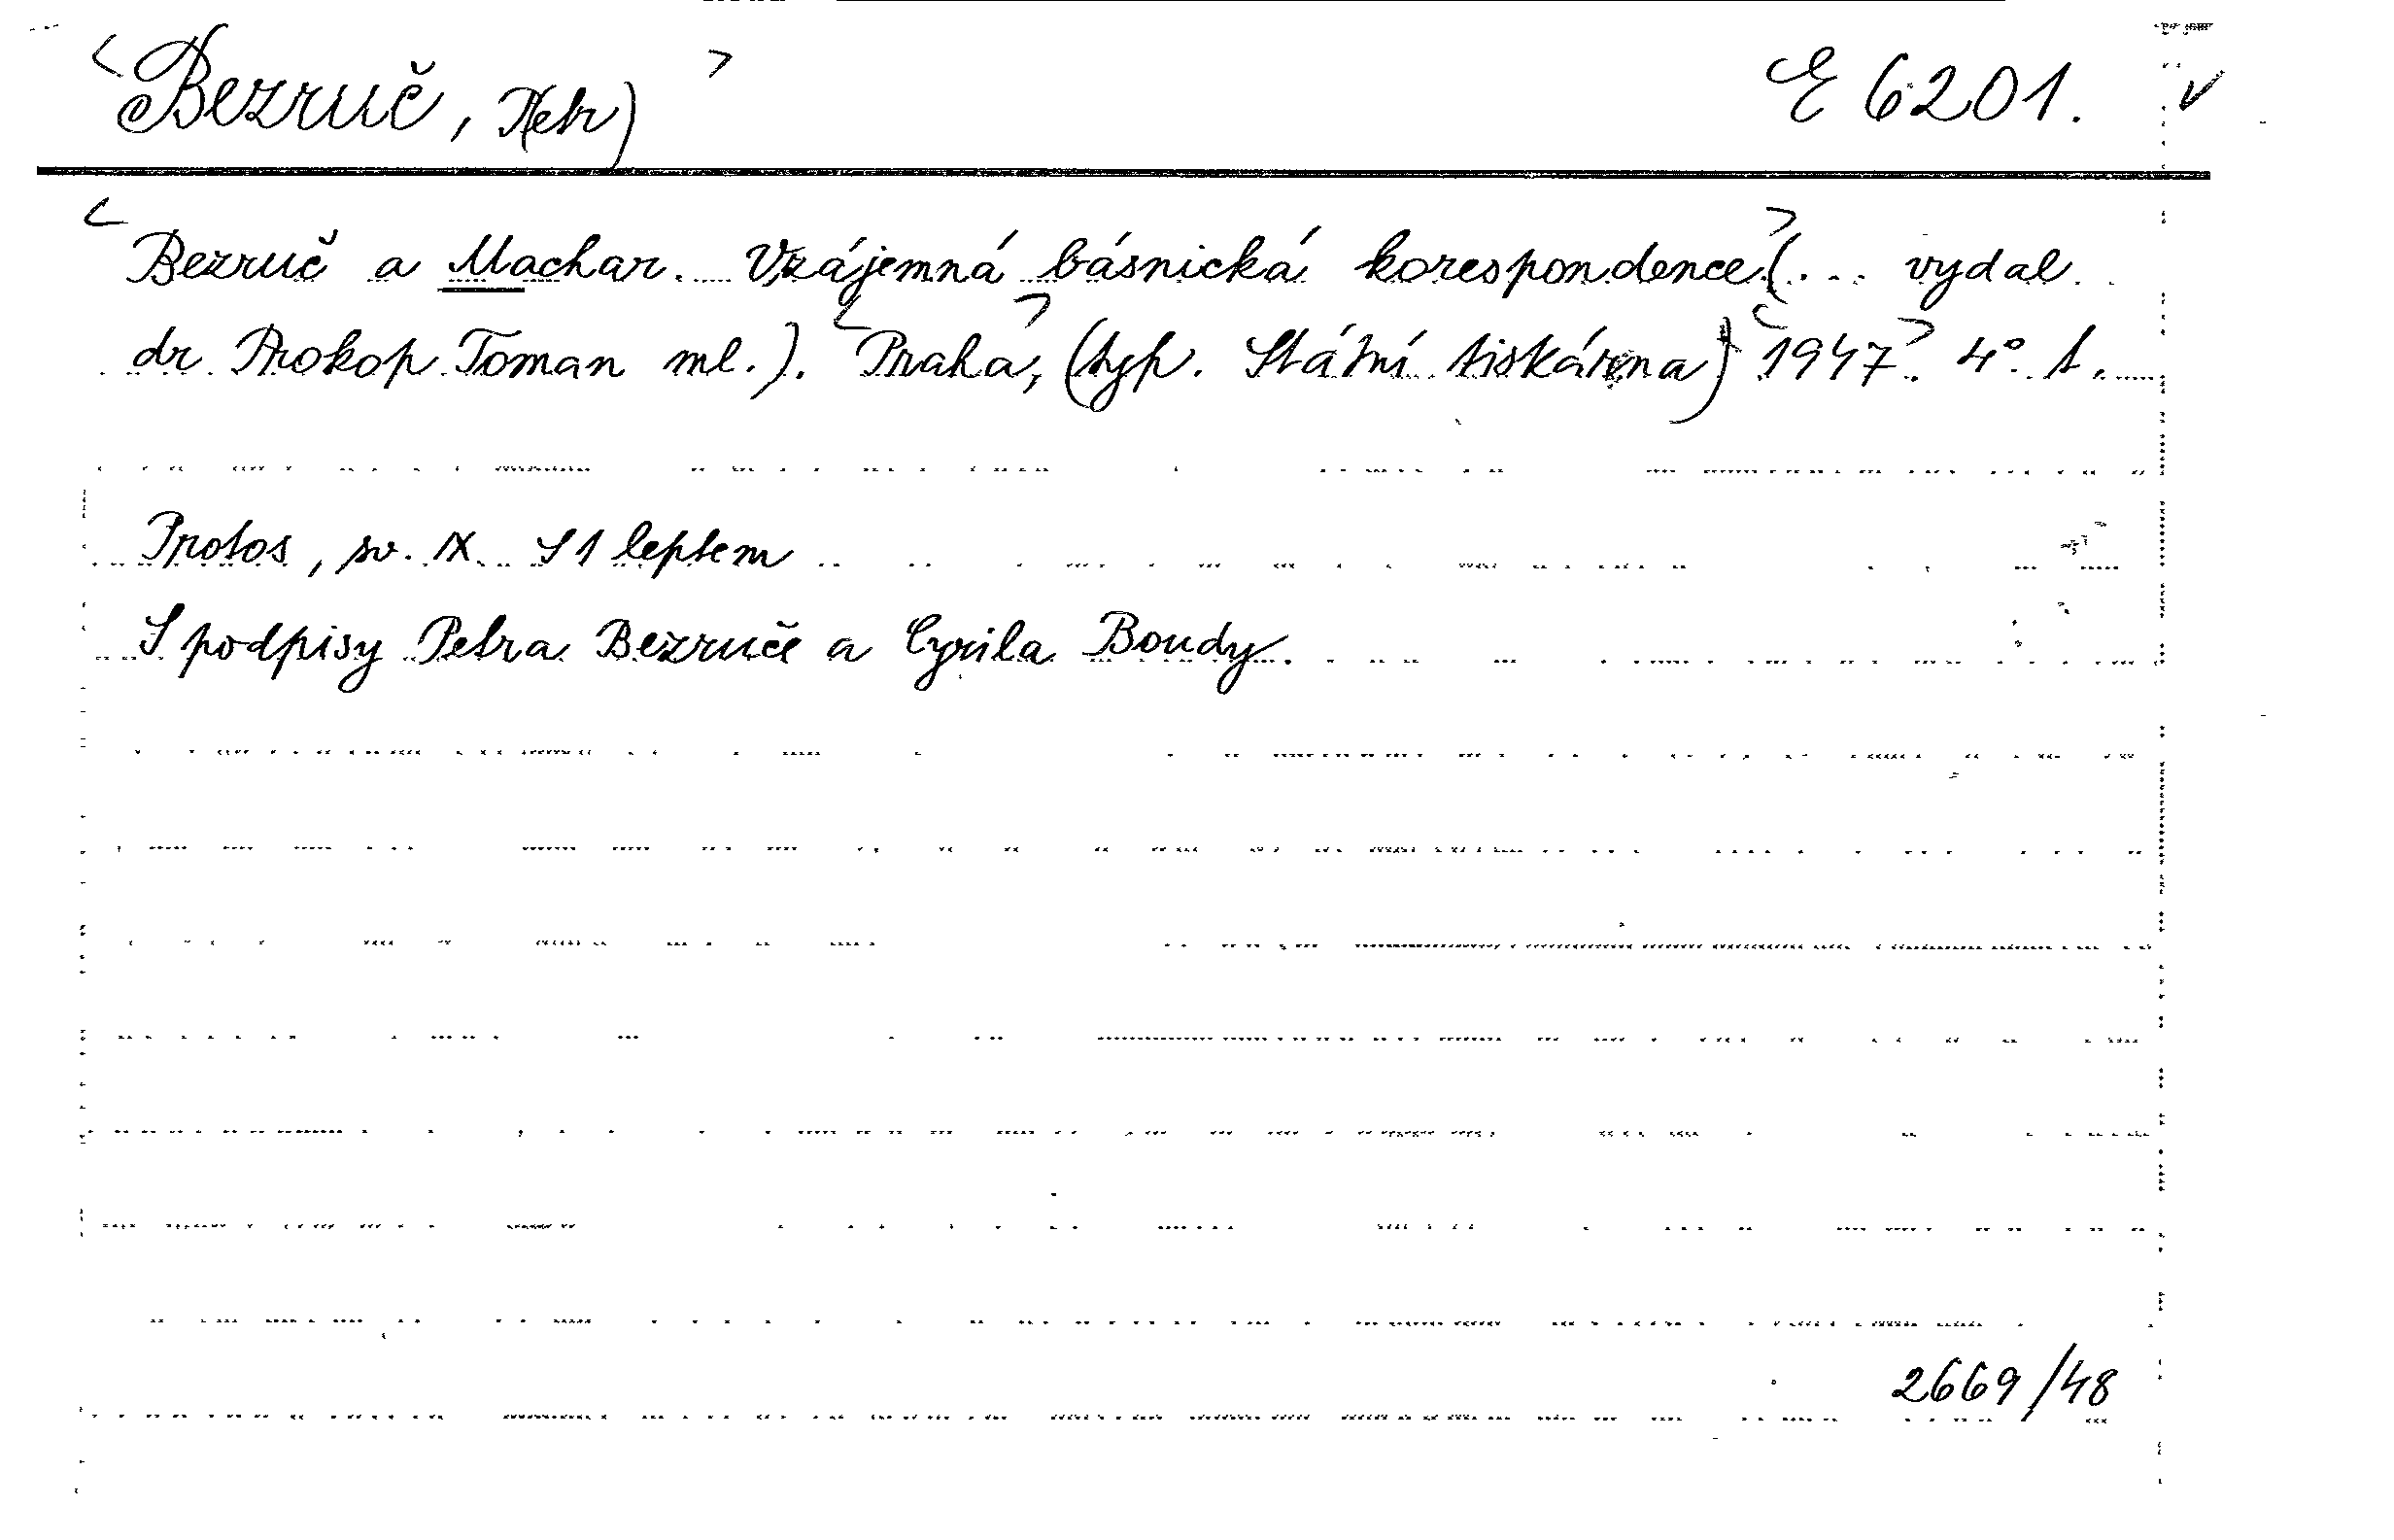 <Bezruč, Petr)> E 6201. v
<Bezruč a Machar. Vzájemná básnická korespondence>(... vydal
dr Prokop Toman ml.). <Praha>, (typ. Státní tiskárna) <1947>. 4°. 1.
Protos, sv. IX. S 1 leptem
S podpisy Petra Bezruče a Cyrila Boudy.
2669/48